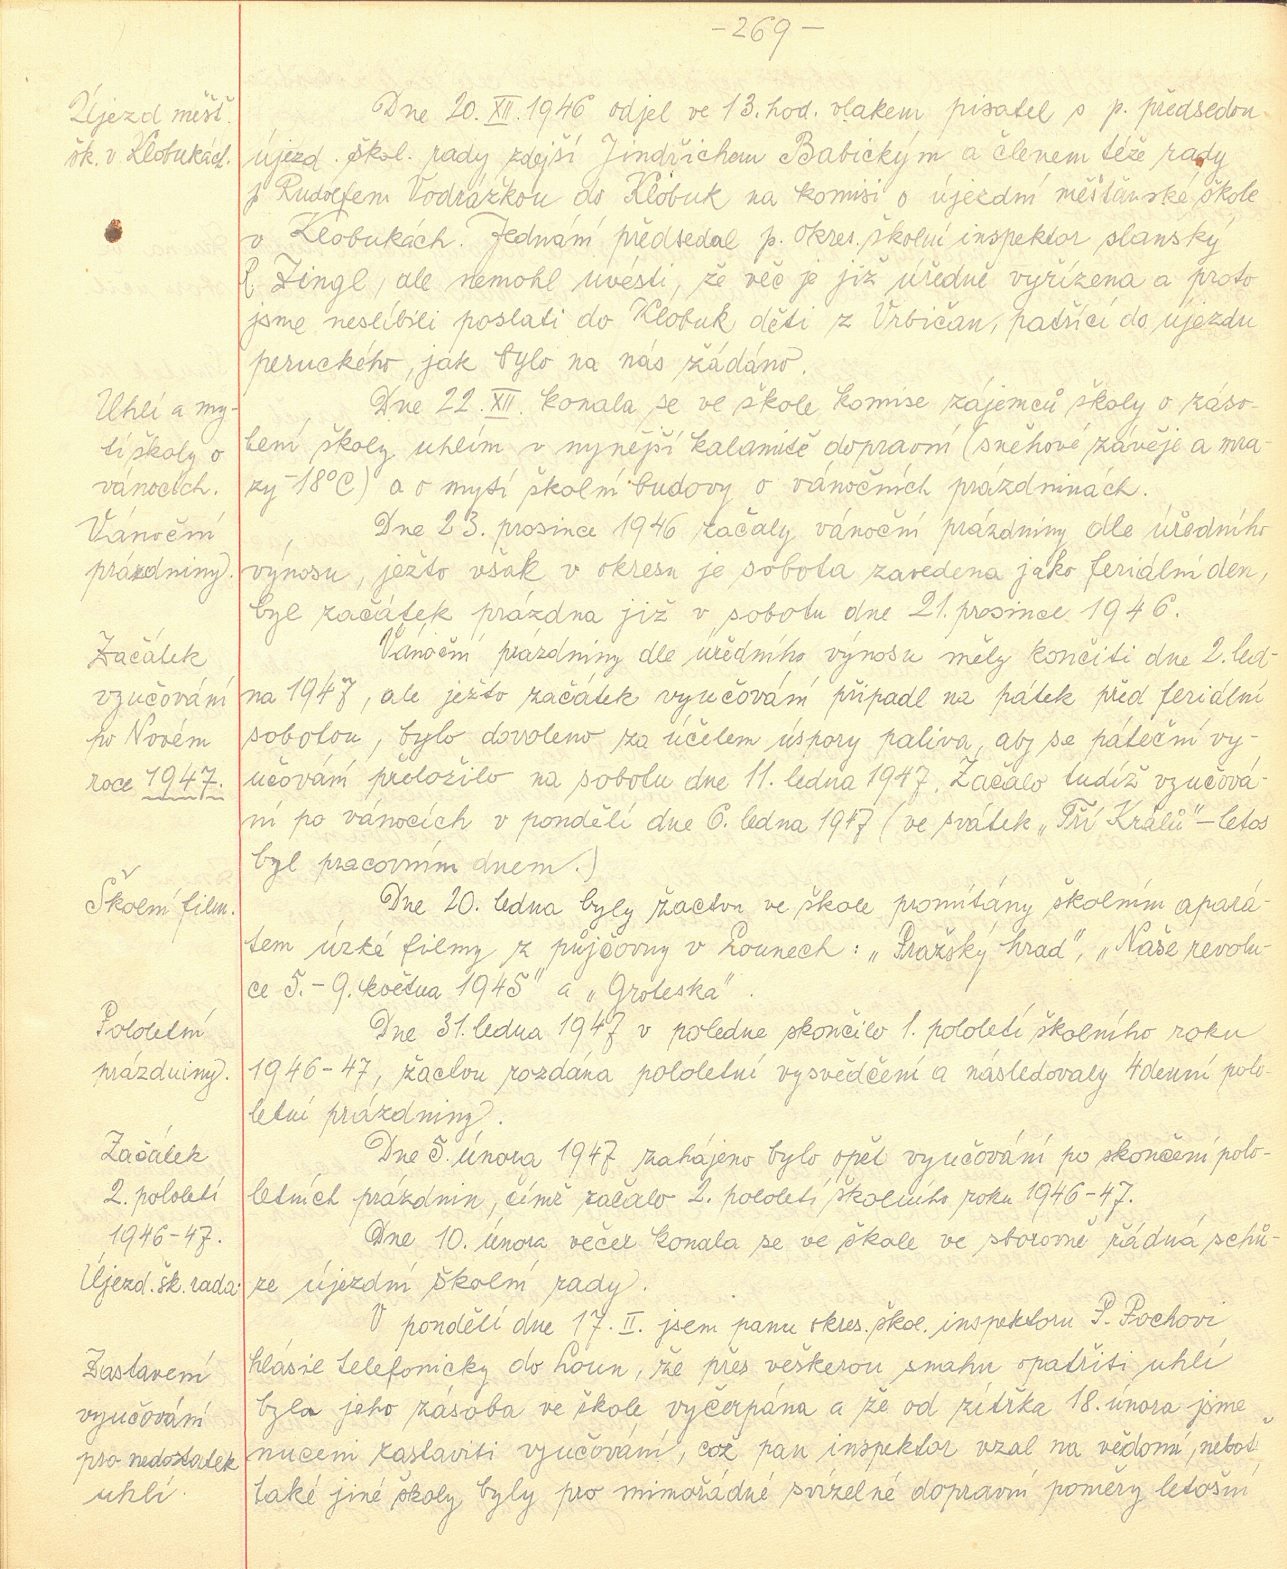 -269-
Újezd měšť.
šk. v Klobukách.
Dne 20. XII. 1946 odjel ve 13. hod. vlakem pisatel s p. předsedou
újezd. škol. rady zdejší Jindřichem Babickým a členem téže rady
p. Rudolfem Vodrážkou do Klobuk na komisi o újezdní měšťanské škole
v Klobukách. Jednání předsedal p. okres. školní inspektor slánský
R. Zingl, ale nemohl uvésti, že věc je již úředně vyřízena a proto
jsme neslíbili poslati do Klobuk děti z Vrbičan, patřící do újezdu
peruckého, jak bylo na nás žádáno.
Uhlí a my-
tí školy o
vánocích.
Dne 22. XII. konala se ve škole komise zájemců školy o záso-
bení školy uhlím v nynější kalamitě dopravní (sněhové závěje a mra-
zy -18°C) a o mytí školní budovy o vánočních prázdninách.
Vánoční
prázdniny.
Dne 23. prosince 1946 začaly vánoční prázdniny dle úředního
výnosu, ježto však v okresu je sobota zavedena jako feriální den,
byl začátek prázdna již v sobotu dne 21. prosince 1946.
Začátek
vyučování
po Novém
roce 1947.
Vánoční prázdniny dle úředního výnosu měly končiti dne 2. led-
na 1947, ale ježto začátek vyučování připadl na pátek před feriální
sobotou, bylo dovoleno za účelem úspory paliva, aby se páteční vy-
učování přeložilo na sobotu dne 11. ledna 1947. Začalo tudíž vyučová-
ní po vánocích v pondělí dne 6. ledna 1947 (ve svátek „Tří Králů" - letos
byl pracovním dnem.)
Školní film.
Dne 20. ledna byly žactvu ve škole promítány školním apará-
tem úzké filmy z půjčovny v Lounech: „Pražský hrad", „Naše revolu-
ce 5. - 9. května 1945" a „Groteska".
Pololetní
prázdniny.
Dne 31. ledna 1947 v poledne skončilo 1. pololetí školního roku
1946-47, žactvu rozdána pololetní vysvědčení a následovaly 4denní polo-
letní prázdniny.
Začátek
2. pololetí
1946-47.
Dne 5. února 1947 zahájeno bylo opět vyučování po skončení polo-
letních prázdnin, čímž začalo 2. pololetí školního roku 1946-47.
Újezd. šk. rada.
Dne 10. února večer konala se ve škole ve sborovně řádná schů-
ze újezdní školní rady.
Zastavení
vyučování
pro nedostatek
uhlí.
V pondělí dne 17. II. jsem panu okres. škol. inspektoru P. Pochovi
hlásil telefonicky do Loun, že přes veškerou snahu opatřiti uhlí
byla jeho zásoba ve škole vyčerpána a že od zítřka 18. února jsme
nuceni zastaviti vyučování, což pan inspektor vzal na vědomí, neboť
také jiné školy byly pro mimořádné svízelné dopravní poměry letošní